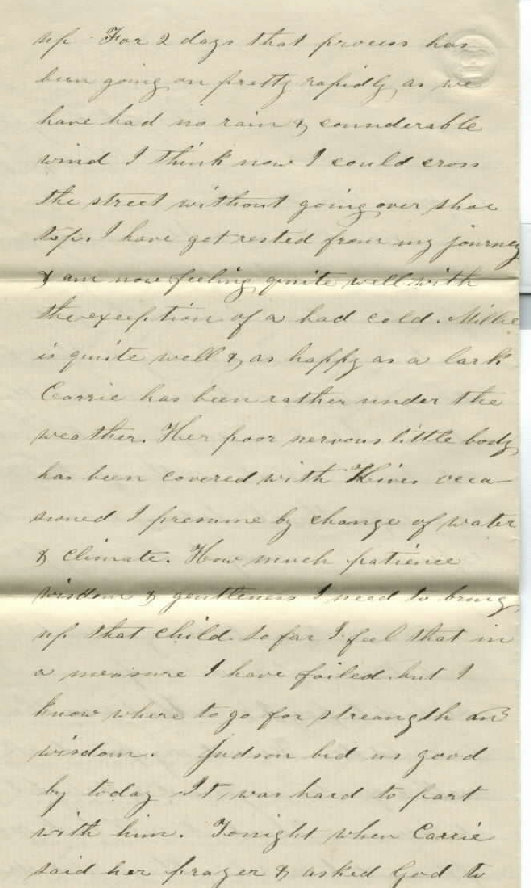 up. For 2 days that process has
been going on pretty rapidly as we
have had no rain & counderable
wind I think now I could cross
the street without going over shoe
top. I have got rested from my journey
& am now feeling quite well with
the exception of a bad cold. Millie
is quite well & as happy as a lark
Carrie has been rather under the
weather. Her poor nervous little body
has been covered with Hives occa-
sioned I presume by change of water
& climate. How much patience
wisdom & gentleness I need to bring
up that child. So far I feel that in
a measure I have failed but I
know where to go for streangth and
wisdom. Judson bid us good
by today It was hard to part
with him. Tonight when Carrie
said her prayer & asked God to